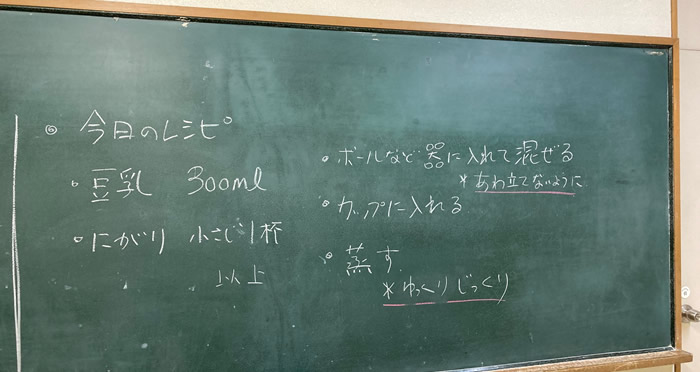 ◎ 今日のレシピ
・豆乳 300ml
・にがり 小さじ1杯
以上
・ボールなど器に入れて混ぜる
* あわ立てないように
・カップに入れる
・蒸す
* ゆっくりじっくり